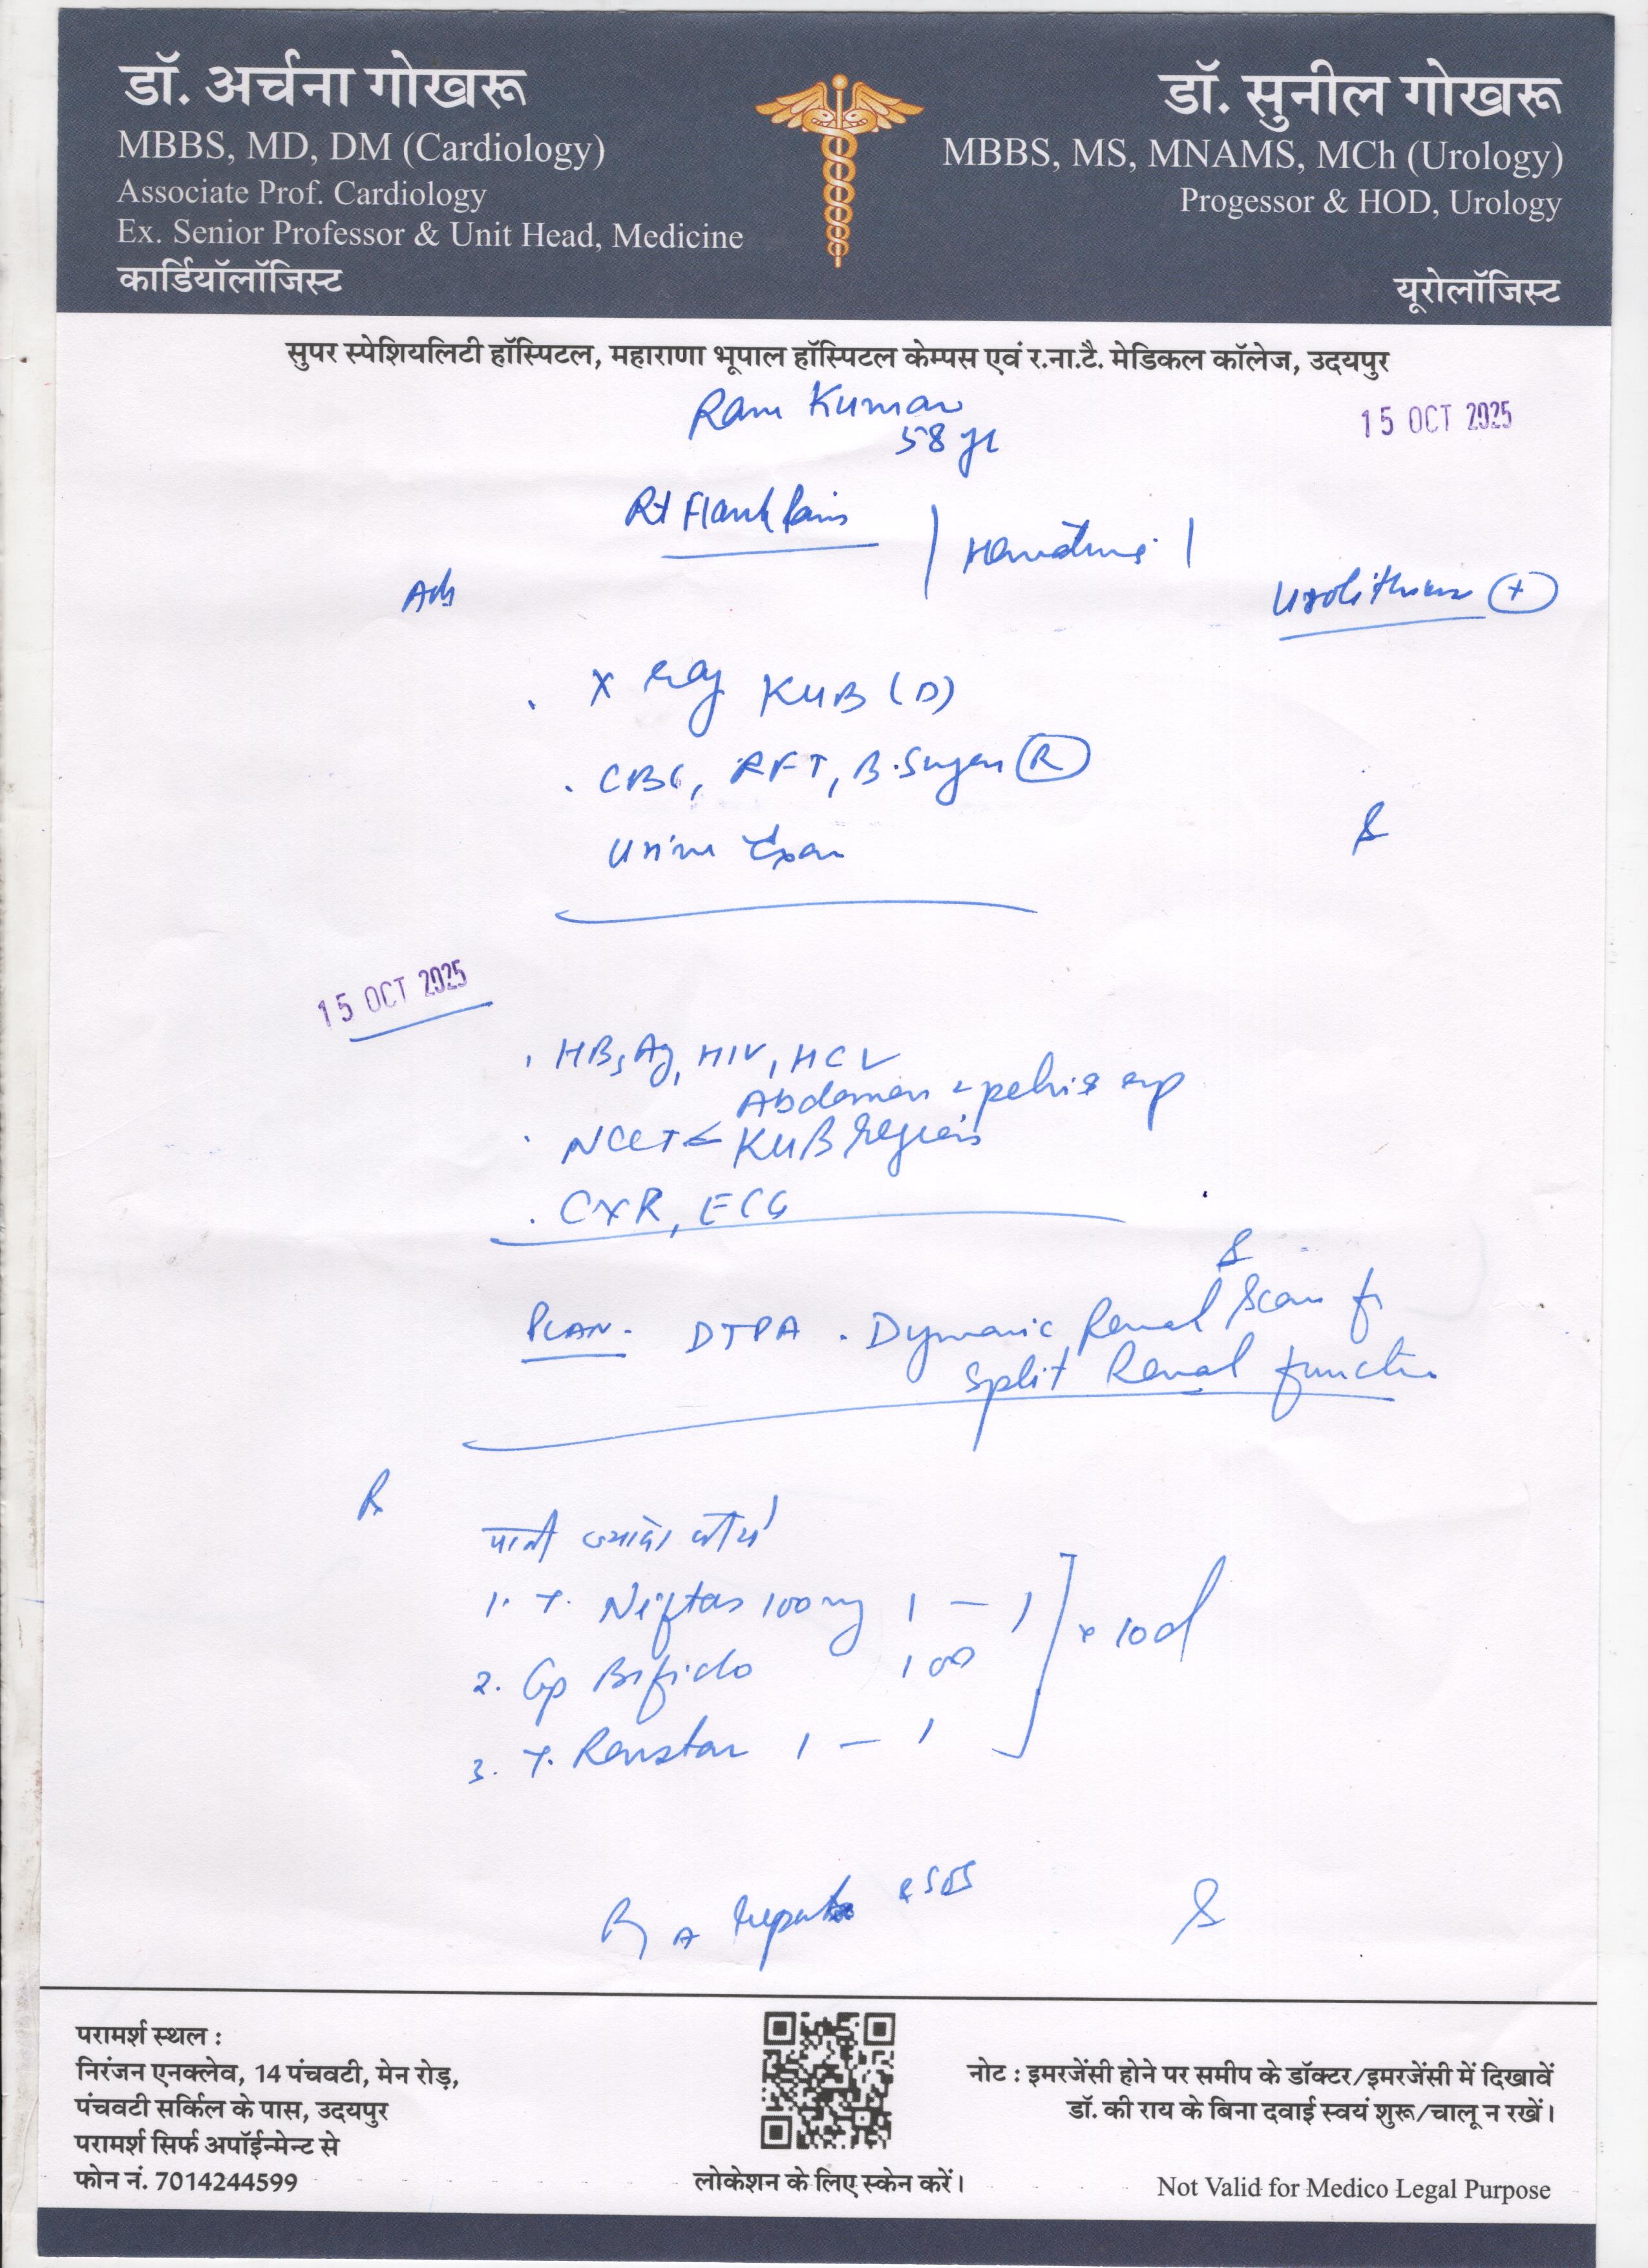 डॉ. अर्चना गोखरू
MBBS, MD, DM (Cardiology)
Associate Prof. Cardiology
Ex. Senior Professor & Unit Head, Medicine
कार्डियॉलॉजिस्ट
डॉ. सुनील गोखरू
MBBS, MS, MNAMS, MCh (Urology)
Progessor & HOD, Urology
यूरोलॉजिस्ट
सुपर स्पेशियलिटी हॉस्पिटल, महाराणा भूपाल हॉस्पिटल केम्पस एवं र.ना.टै. मेडिकल कॉलेज, उदयपुर
Ram Kumar
58 yr
15 OCT 2025
Rt Flank Pain
Urolithiasis (+)
. X Ray KUB (D)
. CBC, RFT, B. Sugar (R)
Urine Exam
15 OCT 2025
. HBsAg, HIV, HCV
Abdomen & pelvis
. NCCT < KUB Region
. CXR, ECG
PLAN. DTPA . Dynamic Renal Scan for
Split Renal function
Rx
पानी ज्यादा पीये
1. T. Niftas 100mg 1 - 1
2. Cap Bifido 1 OD
3. T. Renstar 1 - 1
] x 10d
परामर्श स्थल :
निरंजन एनक्लेव, 14 पंचवटी, मेन रोड़,
पंचवटी सर्किल के पास, उदयपुर
परामर्श सिर्फ अपॉईन्मेन्ट से
फोन नं. 7014244599
लोकेशन के लिए स्केन करें।
नोट : इमरजेंसी होने पर समीप के डॉक्टर/इमरजेंसी में दिखावें
डॉ. की राय के बिना दवाई स्वयं शुरू/चालू न रखें।
Not Valid for Medico Legal Purpose